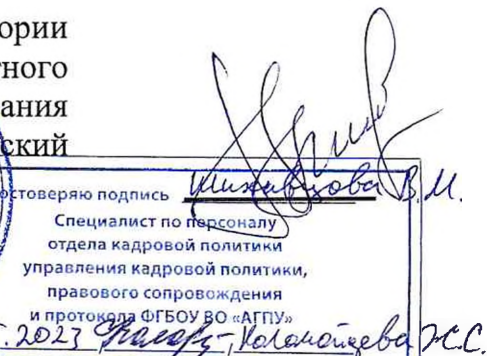 ории
тного
ания
ский
остоверяю подпись В.М.
Специалист по персоналу
отдела кадровой политики
управления кадровой политики,
правового сопровождения
и протокола ФГБОУ ВО «АГПУ»
2023 Ж.С.